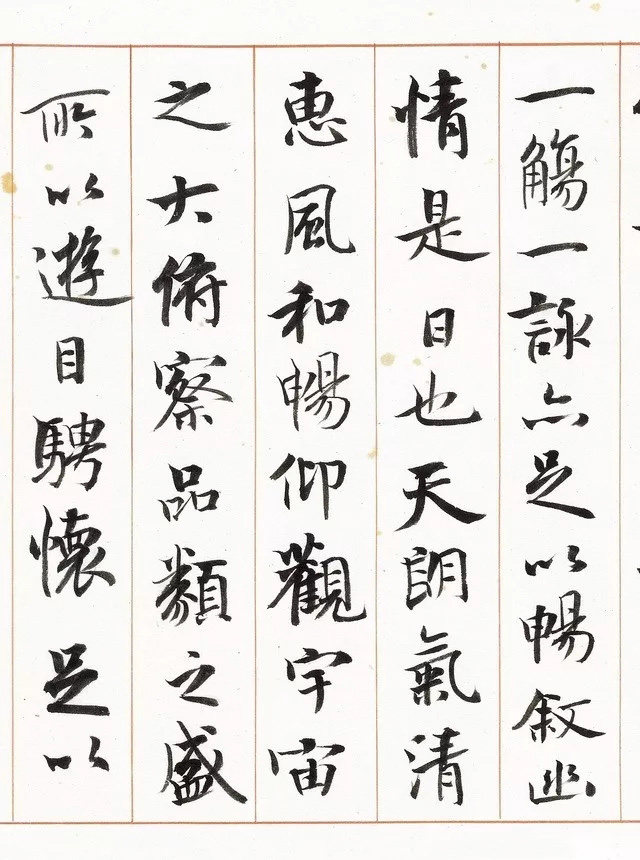 一觴一詠亦足以暢敘幽
情是日也天朗氣清
惠風和暢仰觀宇宙
之大俯察品類之盛
所以遊目騁懷足以